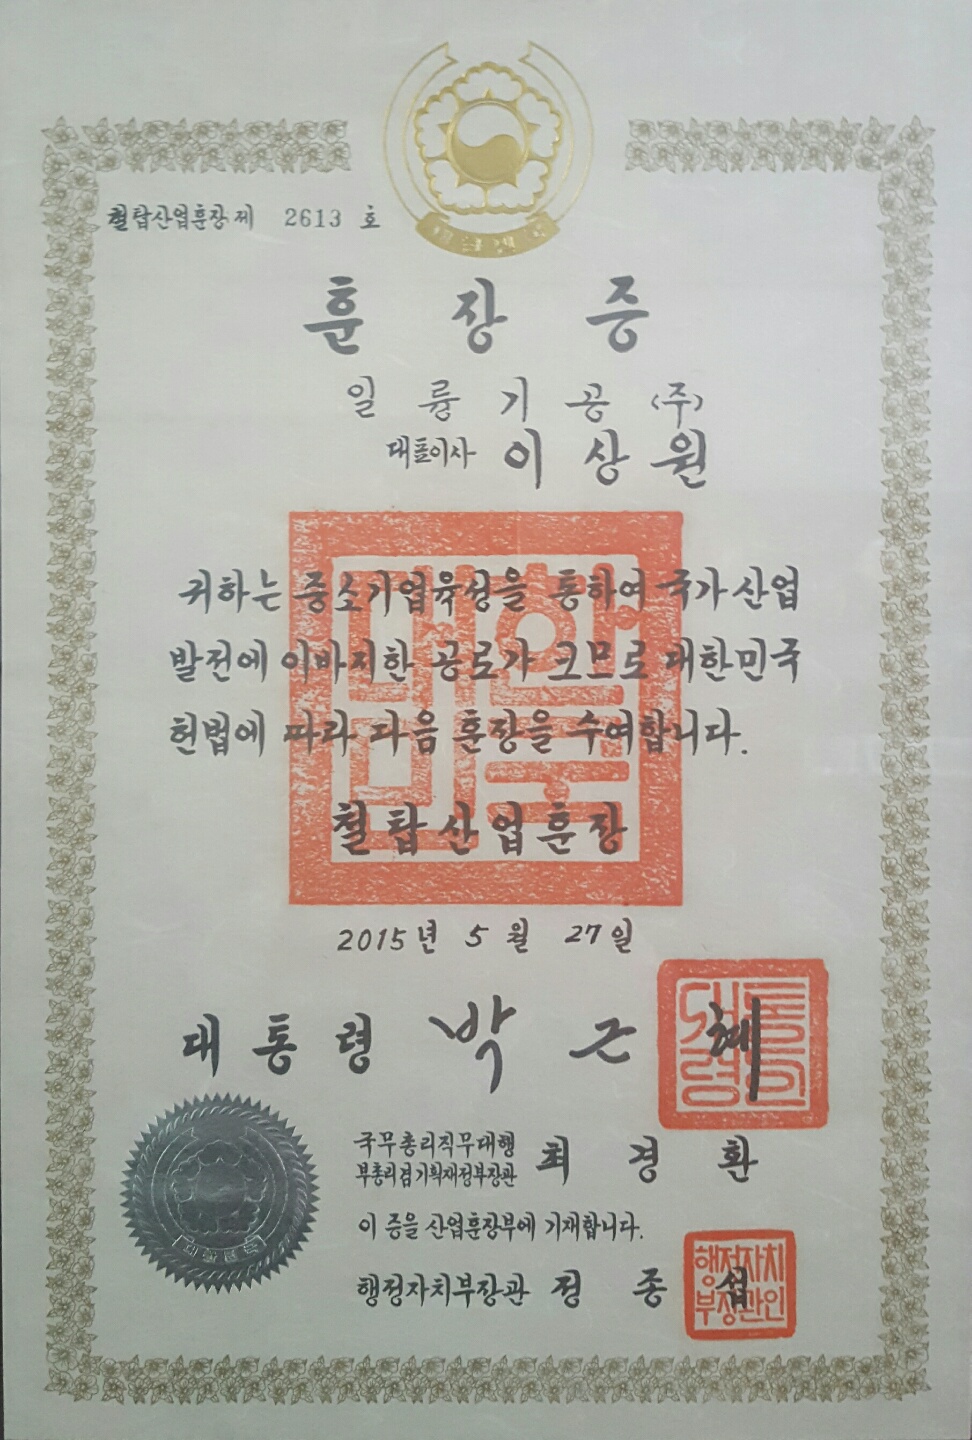 대한민국
철탑산업훈장 제 2613 호
훈장증
일륭기공(주)
대표이사 이상원
귀하는 중소기업육성을 통하여 국가 산업
발전에 이바지한 공로가 크므로 대한민국
헌법에 따라 다음 훈장을 수여합니다.
철탑산업훈장
2015년 5월 27일
대통령 박근혜
국무총리직무대행
부총리겸기획재정부장관 최경환
이 증을 산업훈장부에 기재합니다.
행정자치부장관 정종섭
행정자치
부장관인